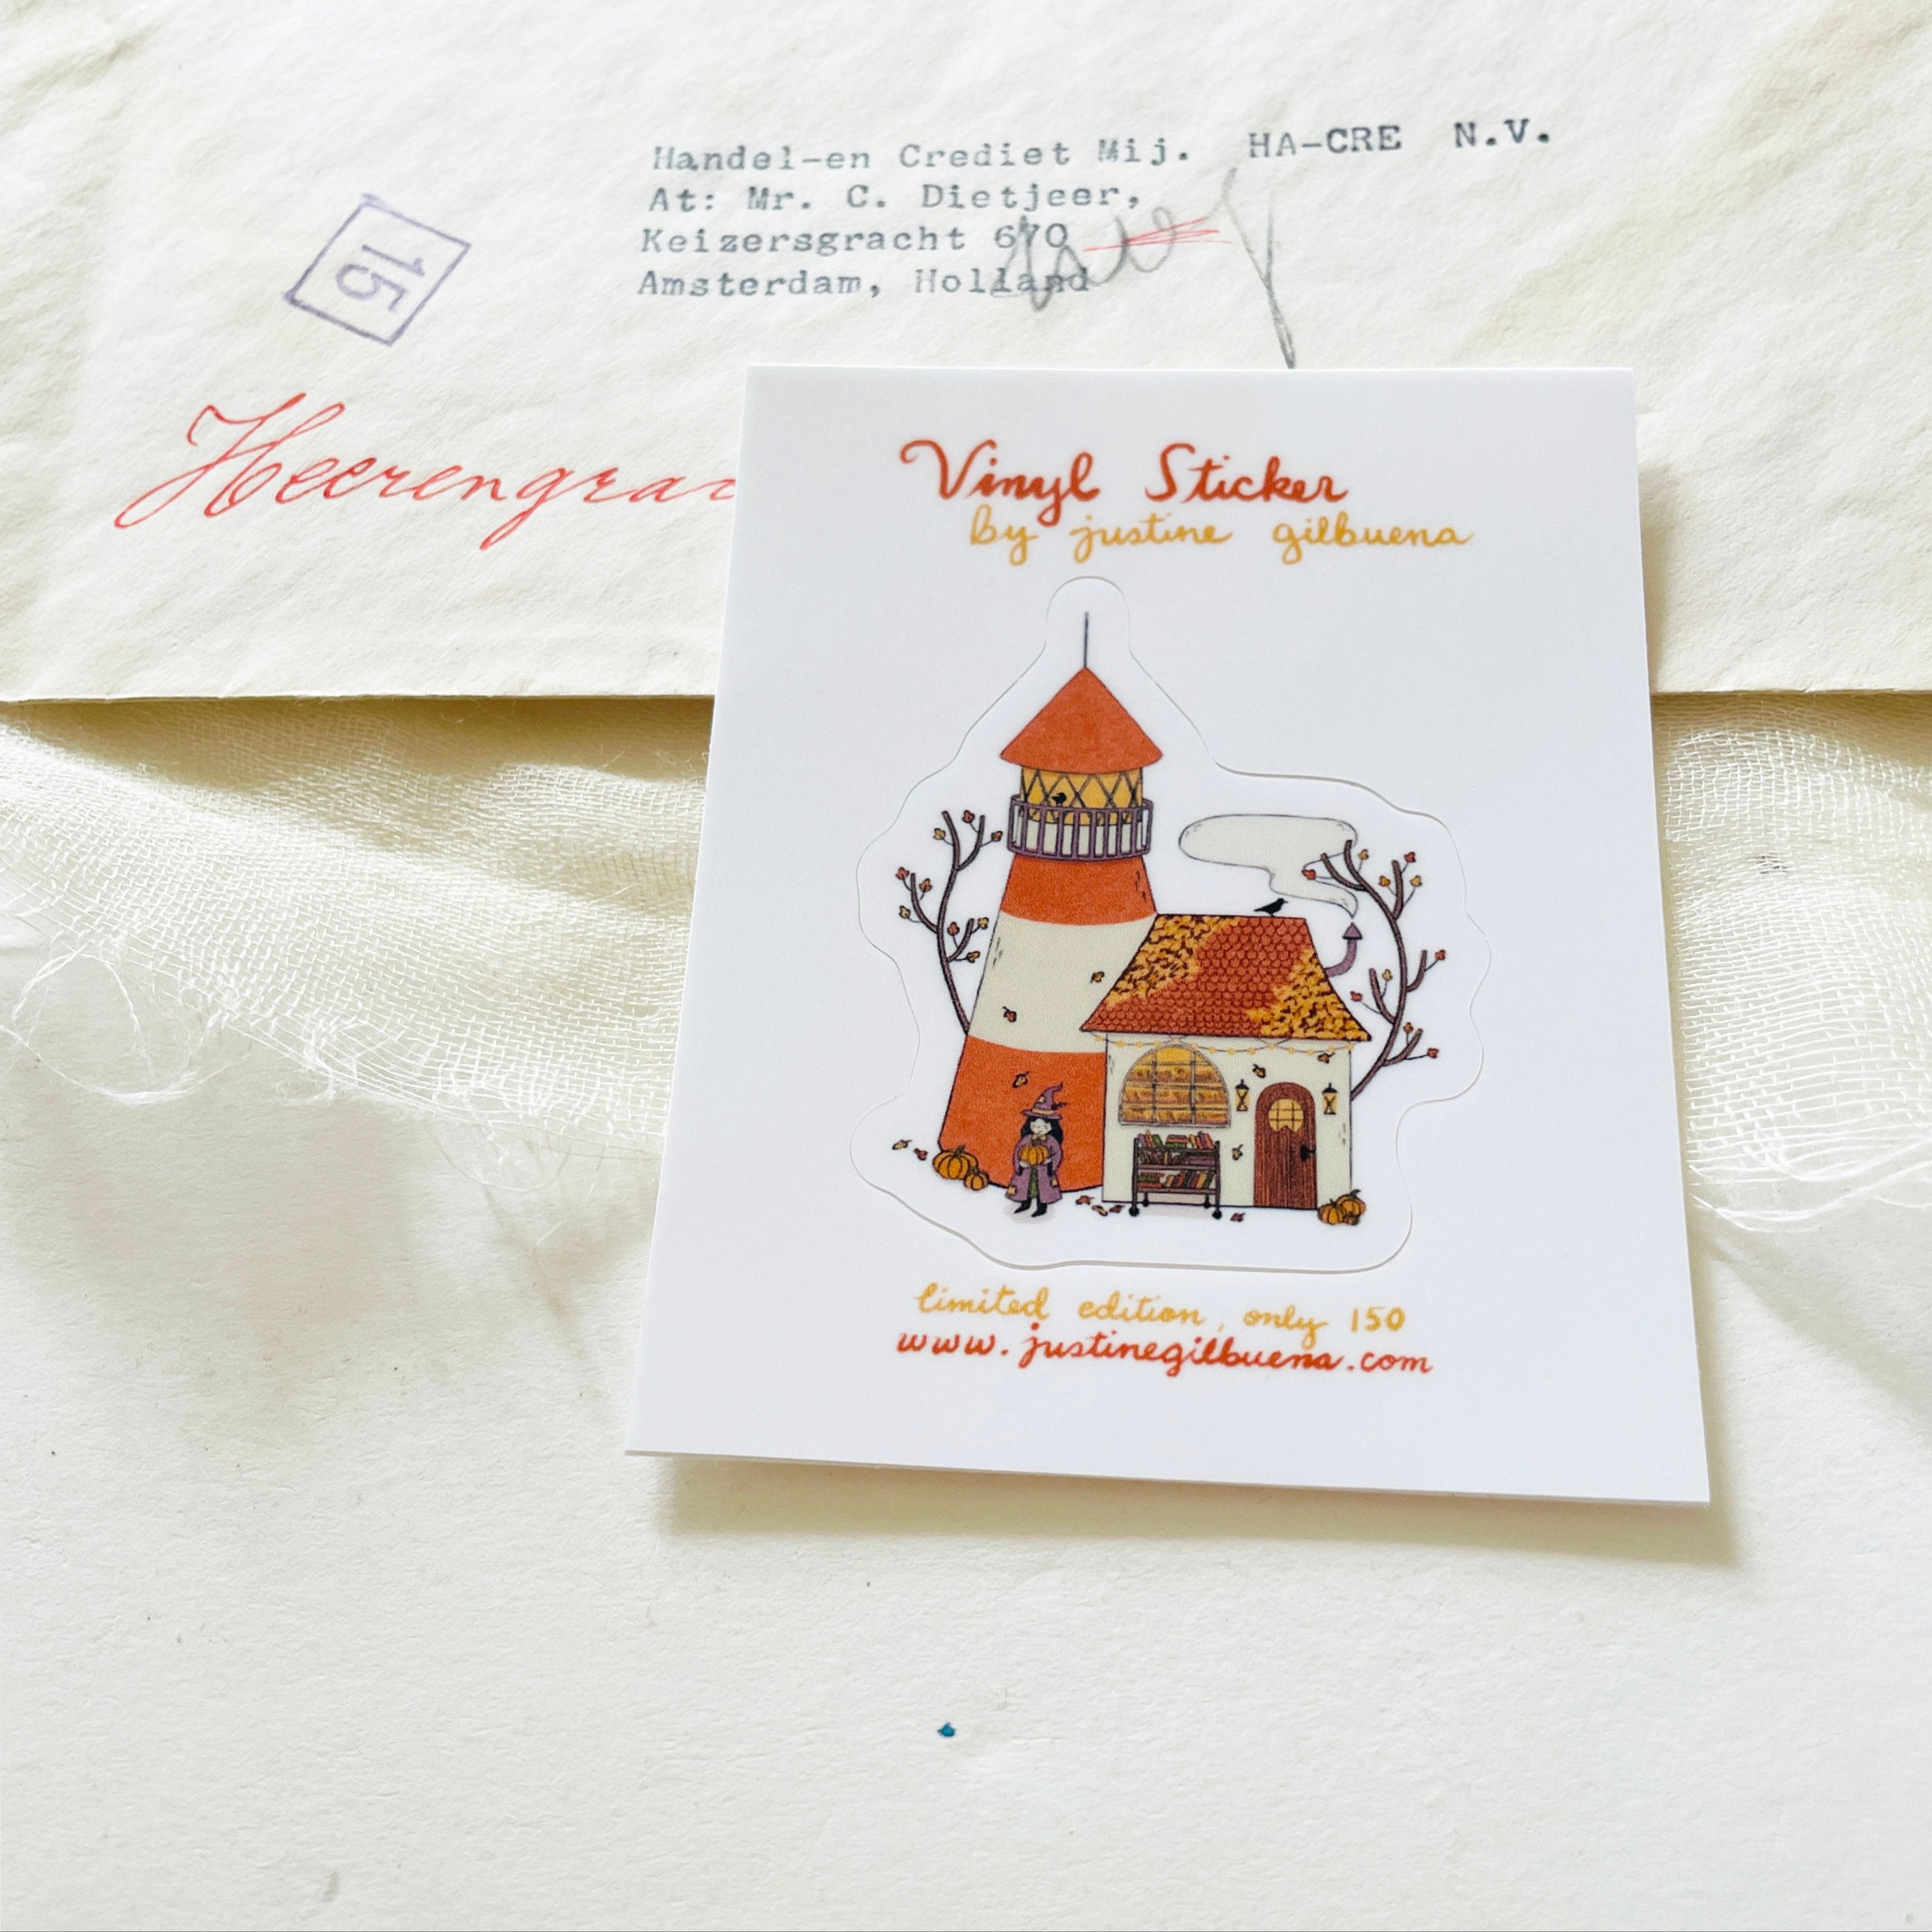 Handel-en Crediet Mij. HA-CRE N.V.
At: Mr. C. Dietjeer,
Keizersgracht 670
Amsterdam, Holland
15
Vinyl Sticker
by justine gilbuena
limited edition, only 150
www.justinegilbuena.com